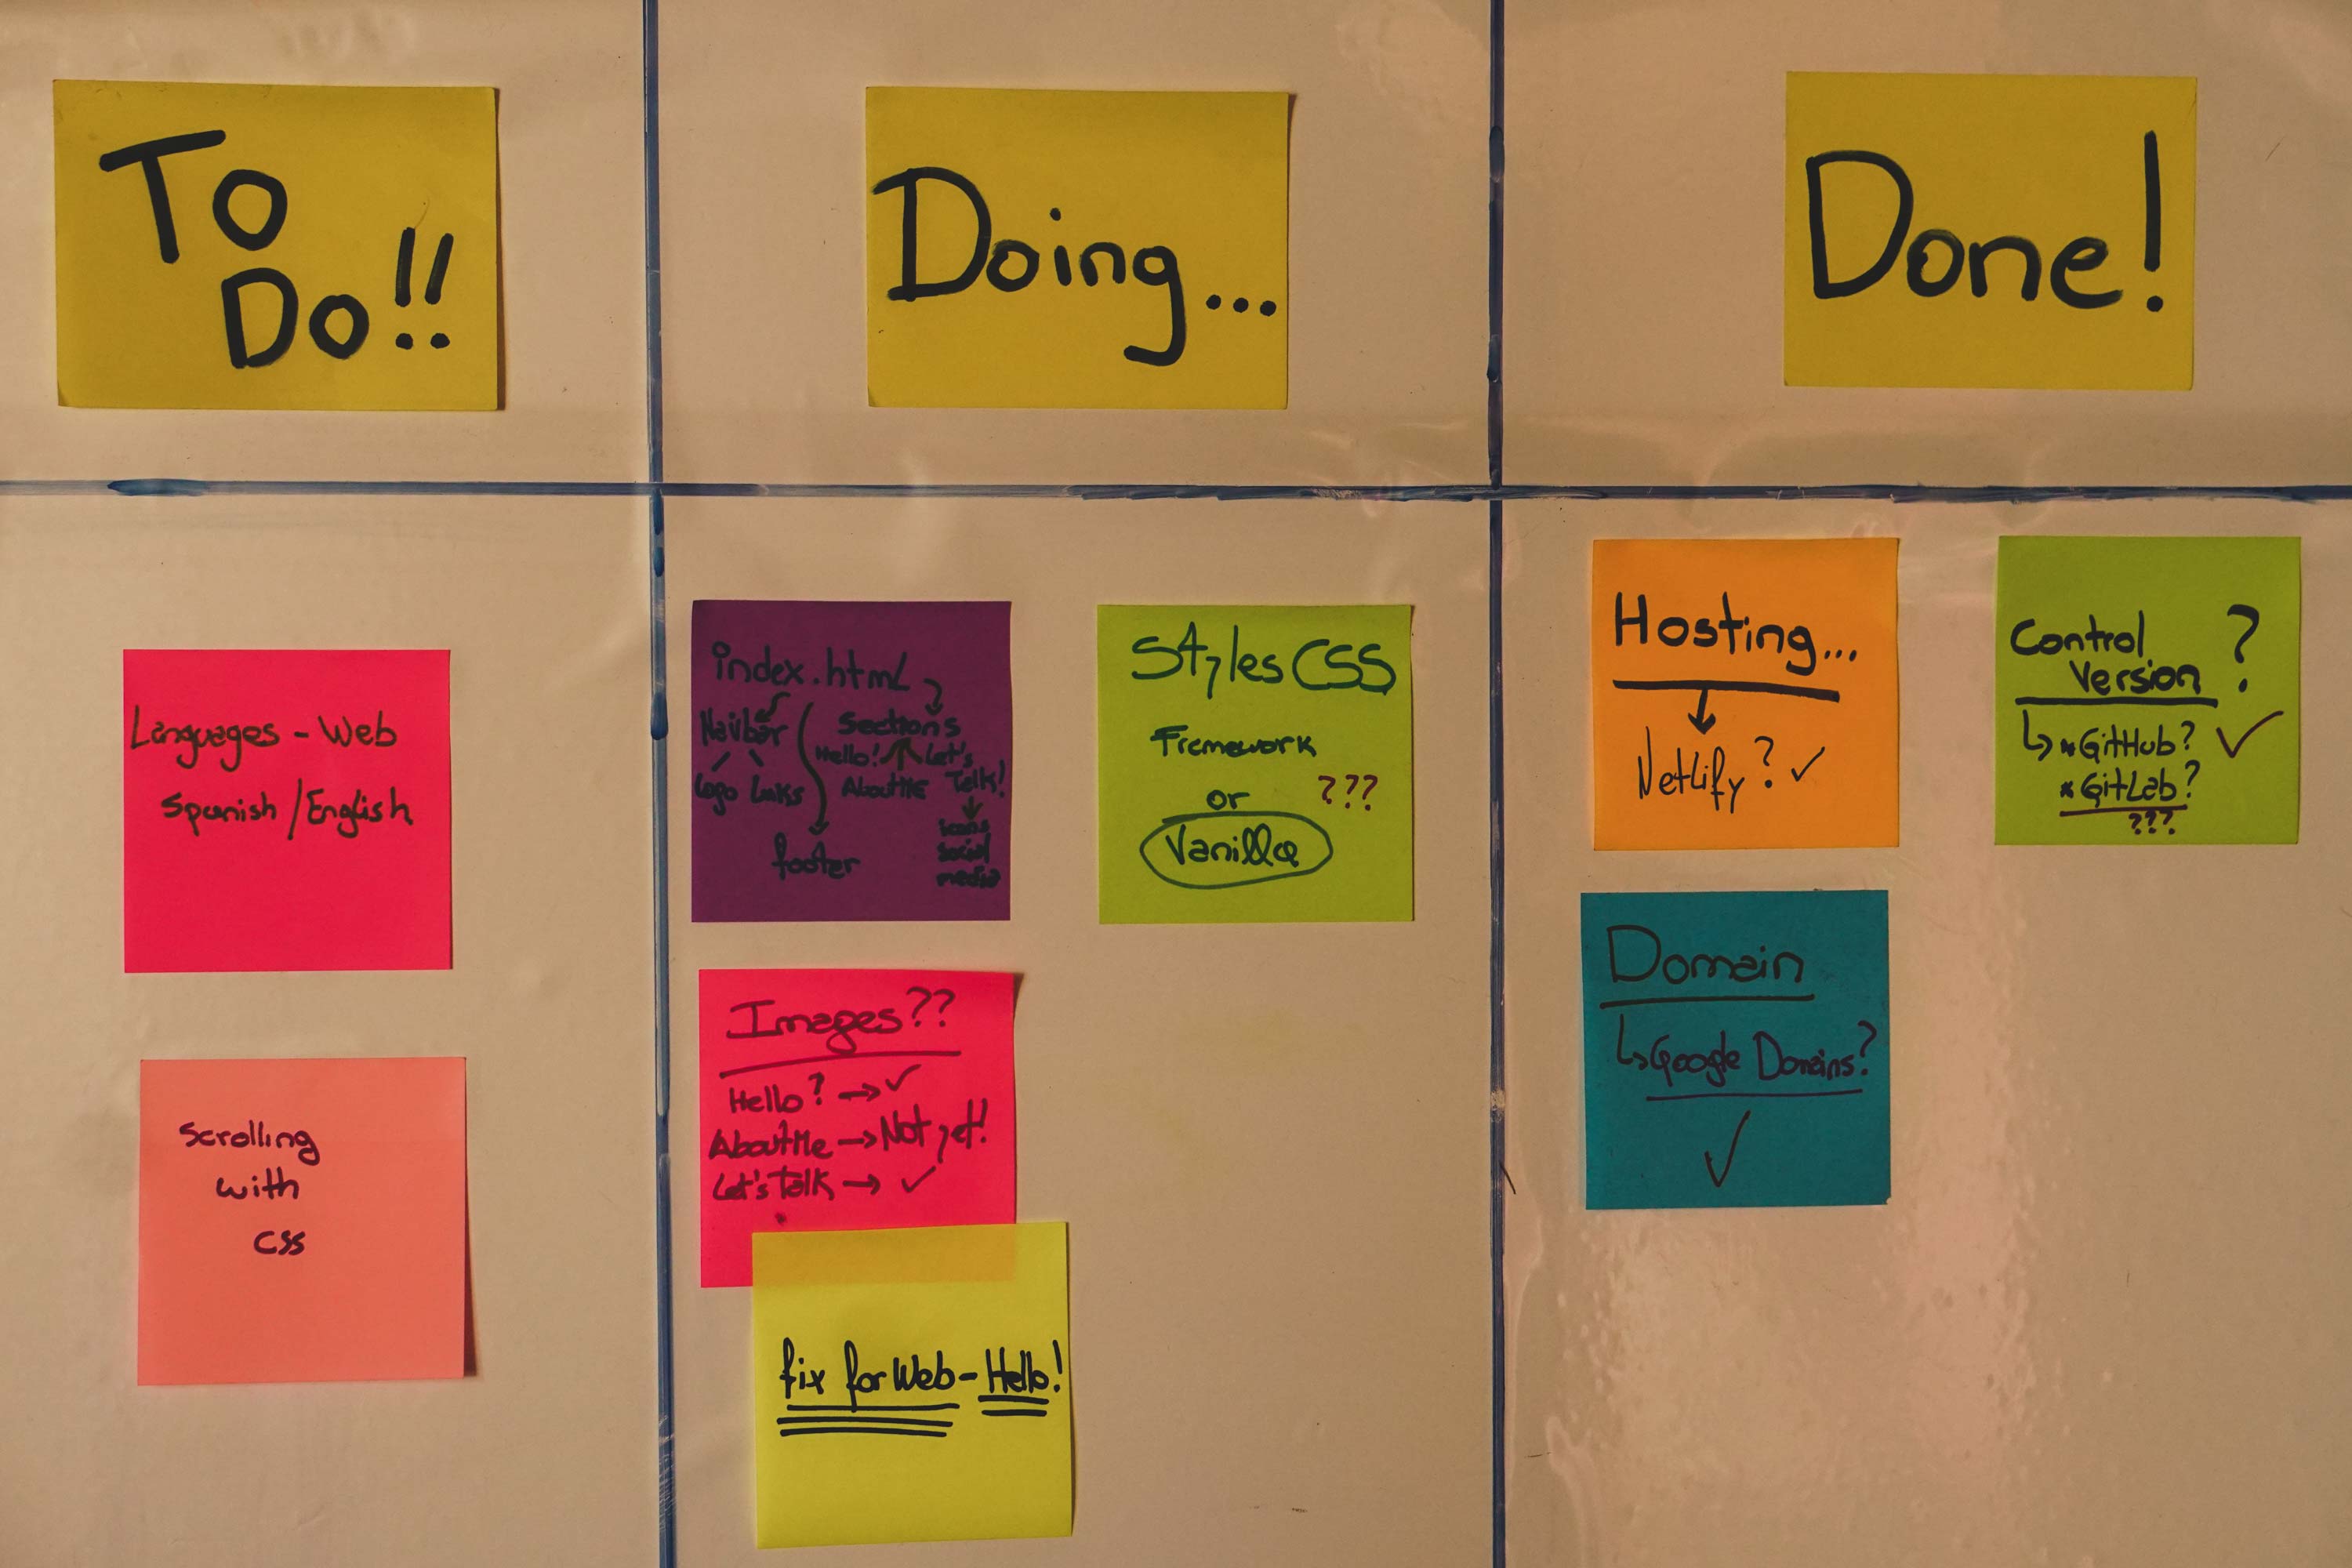 To
Do!!
Doing...
Done!
Languages - Web
Spanish / English
Scrolling
with
CSS
index.html
Navbar
Logo Links
Sections
Hello! Let's
About Me Talk!
icons
social
media
footer
Styles CSS
Framework
or ???
Vanilla
Images??
Hello? → ✓
About Me → Not yet!
Let's Talk → ✓
fix for Web - Hello!
Hosting...
Netlify? ✓
Control ?
Version
↳ * GitHub? ✓
* GitLab?
???
Domain
↳ Google Domains?
✓